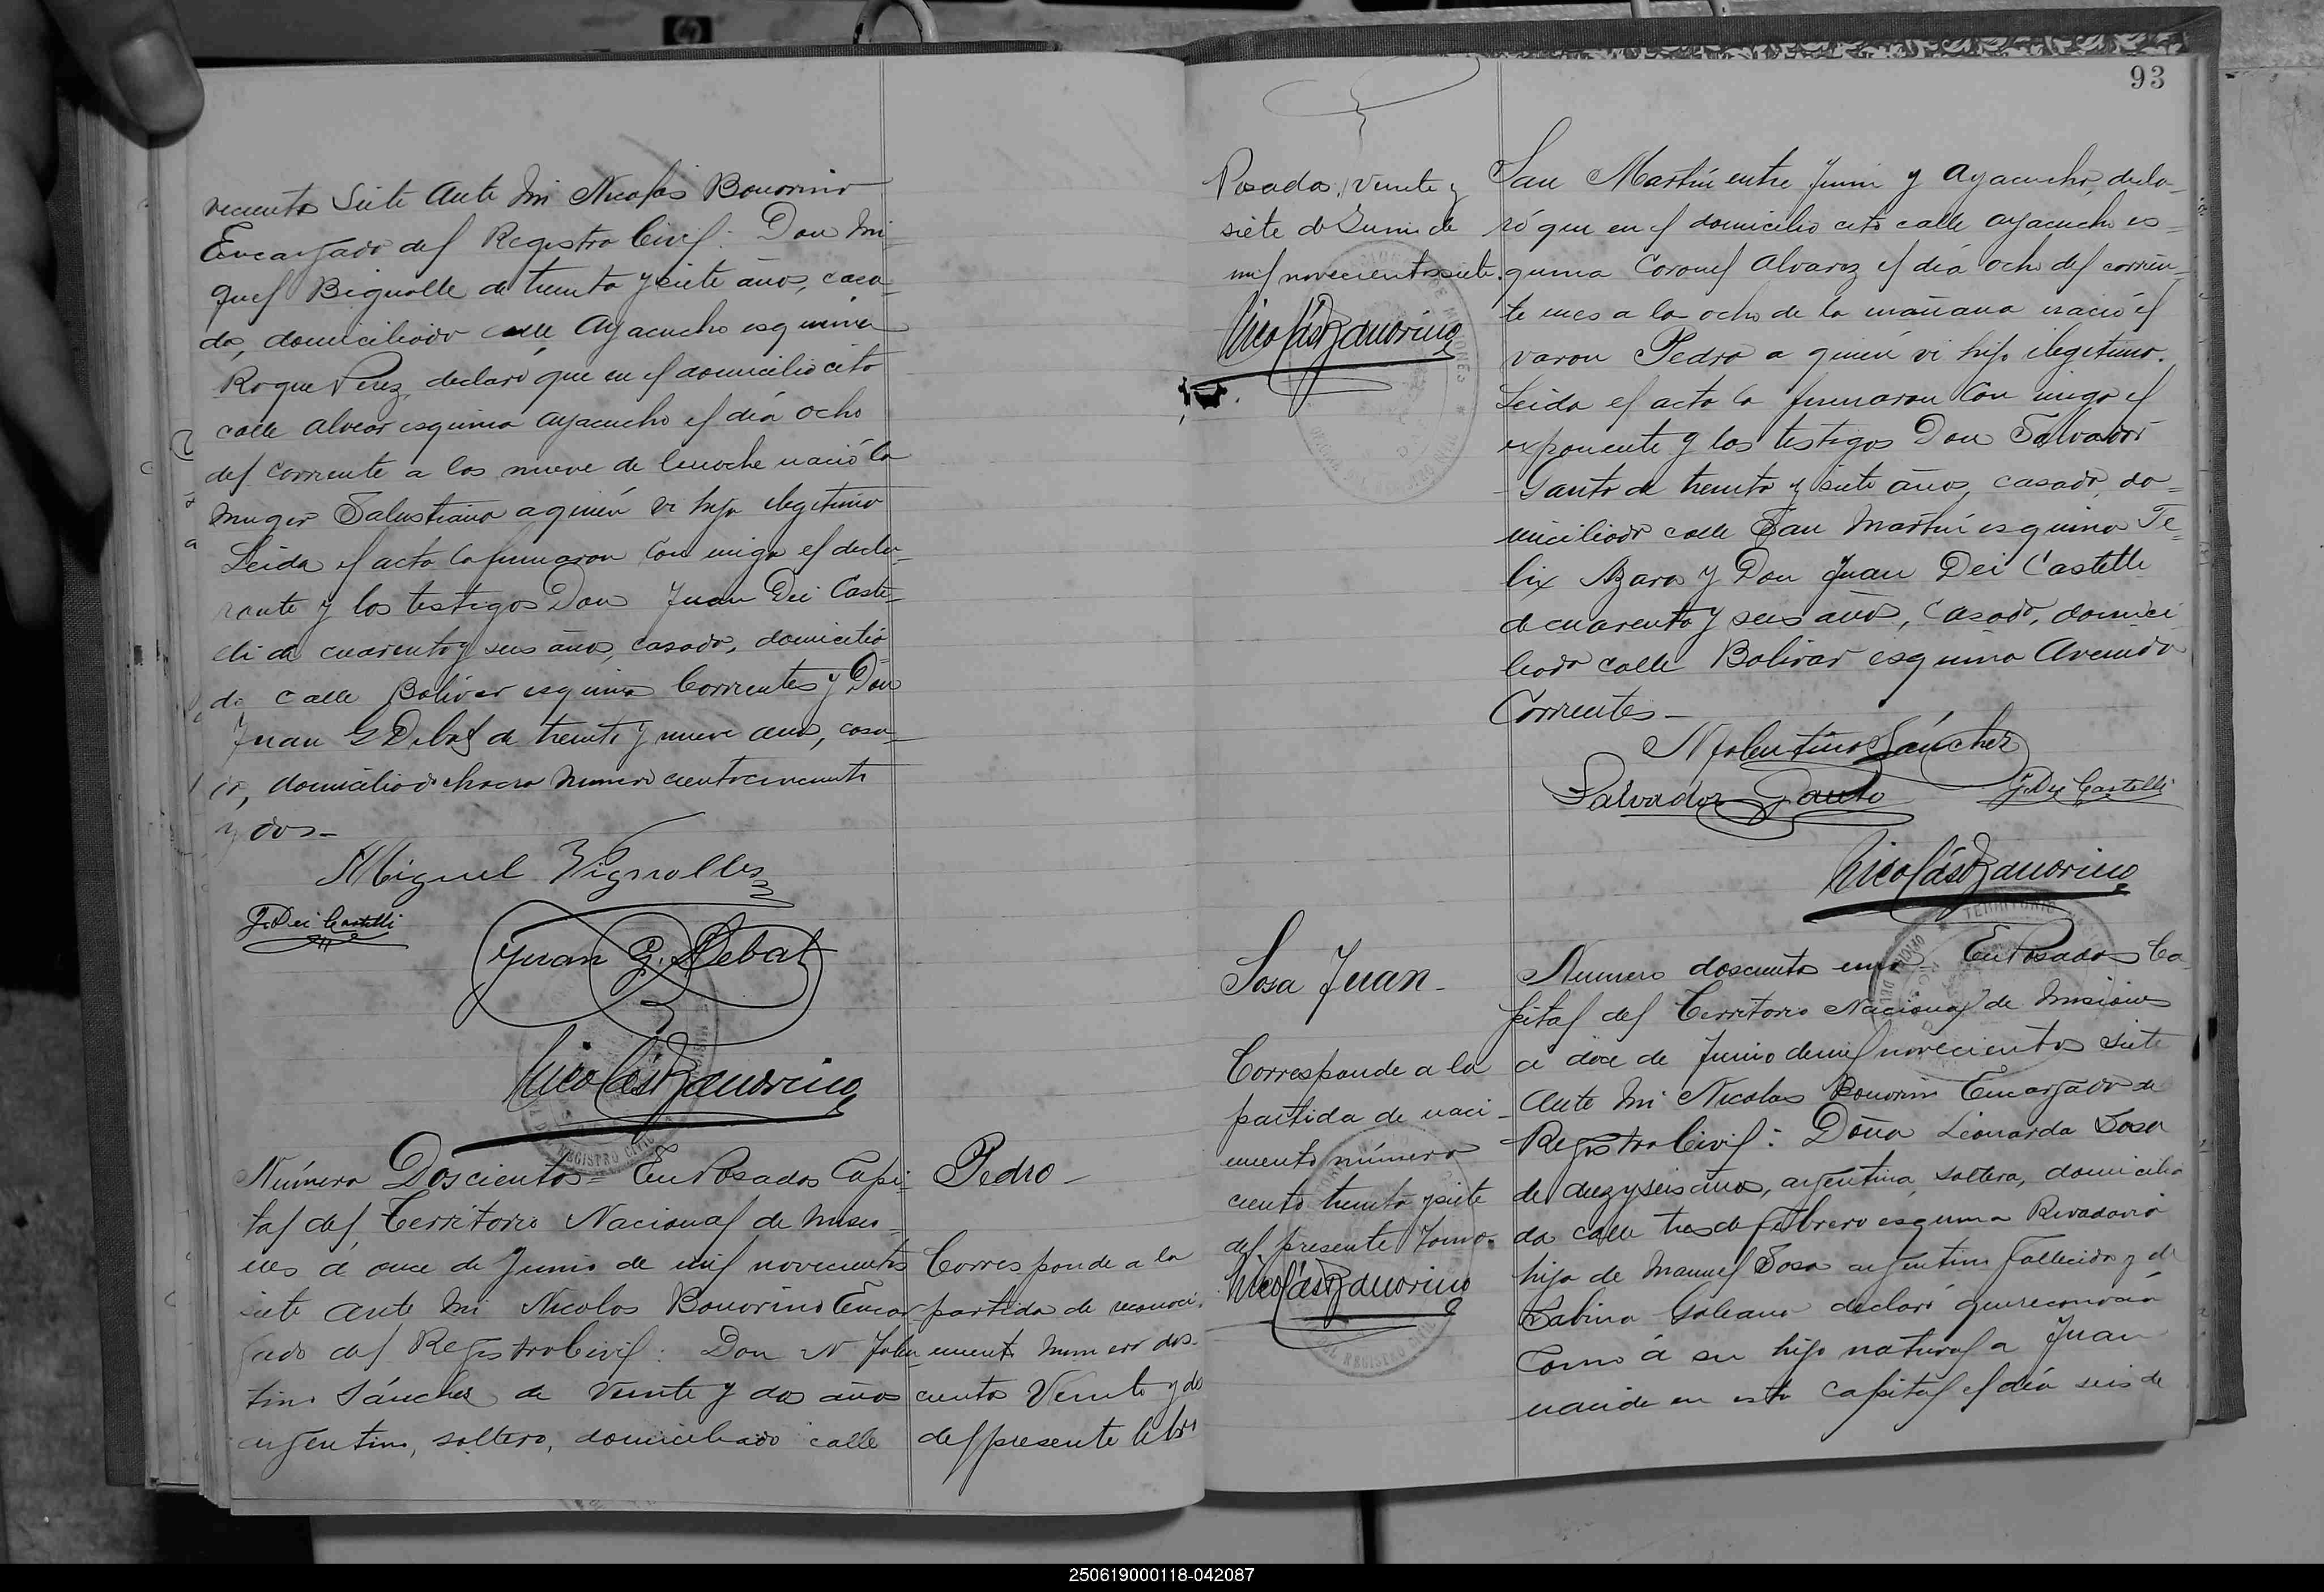 vecientos Siete Ante Mi Nicolás Bonorino
Encargado del Registro Civil: Don Mi
guel Bignolle de treinta y siete años, casa
do, domiciliado calle Ayacucho esquina
Roque Perez, declaró que en el domicilio cito
calle Alvear esquina Ayacucho el día ocho
del corriente a las nueve de la noche nació la
muger Salustiana a quién vi hija ilegitima
Leida el acta la firmaron con migo el decla-
rante y los testigos Don Juan Dei Caste-
lli de cuarenta y seis años, casado, domicilia
do calle Bolivar esquina Corrientes y Don
Juan G Debat de treinta y nueve años, casa-
do, domiciliado chacra numero ciento cincuenta
y dos-
Miguel Vignolles
J. Dei Castelli
Juan G. Debat
Nicolás Bonorino
REGISTRO CIVIL
Número Doscientos = En Posadas Capi-
tal del Territorio Nacional de Misio-
nes á once de Junio de mil novecientos
siete Ante Mi Nicolas Bonorino Encar
gado del Registro Civil: Don N Tolen
tino Sánchez de veinte y dos años
argentino, soltero, domiciliado calle
Pedro-
Corresponde a la
partida de reconoci-
miento numero dos-
cientos veinte y dos
del presente libro
93
Posadas, veinte y
siete de Junio de
mil novecientos siete.
Nicolás Bonorino
San Martín entre Junin y Ayacucho, decla-
ró que en el domicilio cito calle Ayacucho es-
quina Coronel Alvarez el día ocho del corrien-
te mes a la ocho de la mañana nació el
varon Pedro a quién vi hijo ilegitimo.
Leida el acta la firmaron con migo el
exponente y los testigos Don Salvador
Gauto de treinta y siete años, casado, do=
miciliado calle San Martín esquina Fe=
lix Azara y Don Juan Dei Castelli
de cuarenta y seis años, casado, domici
liado calle Bolivar esquina Avenida
Corrientes-
N Tolentino Sánchez
Salvador Gauto
J. Dei Castelli
Nicolás Bonorino
TERRITORIO
Sosa Juan-
Corresponde a la
partida de naci-
miento número
ciento treinta y siete
del presente Tomo.
Nicolás Bonorino
REGISTRO CIVIL
Numero doscientos uno- En Posadas Ca
pital del Territorio Nacional de Misiones
a doce de Junio de mil novecientos siete
Ante Mi Nicolas Bonorino Encargado de
Registro Civil: Doña Leonarda Sosa
de diez y seis años, argentina, soltera, domicilia
da calle tres de febrero esquina Rivadavia
hija de Manuel Sosa argentino fallecido y de
Sabina Galeano declaró que reconocía
como á su hijo natural a Juan
nacido en esta Capital el día seis de
250619000118-042087